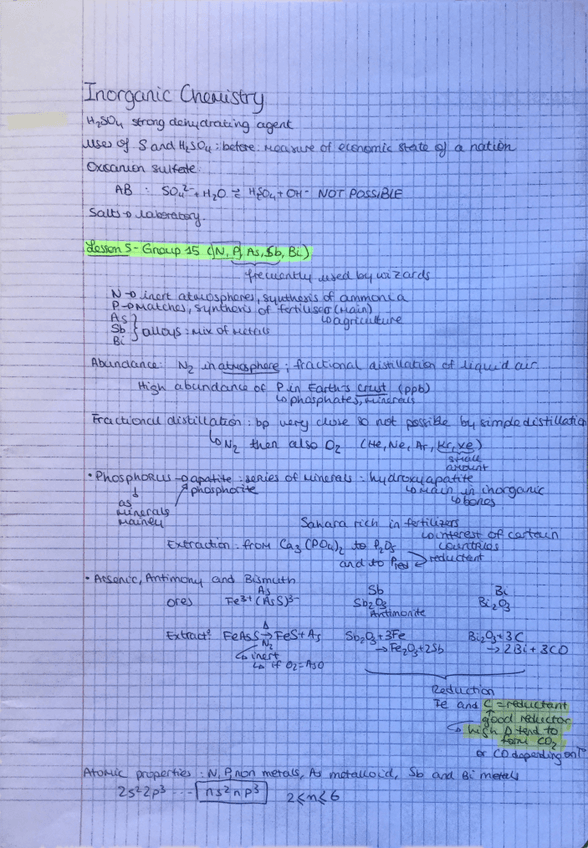 Inorganic Chemistry
H₂SO₄ strong dehydrating agent
uses of S and H₂SO₄ : before measure of economic state of a nation
Oxoanion sulfate
AB : SO₄²⁻ + H₂O ⇄ HSO₄ + OH⁻ NOT POSSIBLE
Salts → laboratory.
Lesson 5 - Group 15 (N, P, As, Sb, Bi)
frequently used by wizards
N → inert atmospheres, synthesis of ammonia
P → matches, synthesis of fertiliser (main)
↳ agriculture
As
Sb } alloys : mix of metals
Bi
Abundance : N₂ in atmosphere ; fractional distillation of liquid air
High abundance of P in Earth's crust (ppb)
↳ phosphates, minerals
Fractional distillation : bp very close so not possible by simple distillation
↳ N₂ then also O₂ (He, Ne, Ar, Kr, Xe)
small
amount
• Phosphorus → apatite : series of minerals : hydroxyapatite
↓ phosphorite ↳ main in inorganic
as ↳ bones
minerals
mainly
Sahara rich in fertilizers
↳ interest of certain
countries
Extraction : from Ca₃(PO₄)₂ to P₂O₅
and to Pred → reductant
• Arsenic, Antimony and Bismuth
As Sb Bi
ores Fe³⁺(AsS)³⁻ Sb₂O₃ Bi₂O₃
Antimonite
Extract° FeAsS →Δ N₂ FeS + As Sb₂O₃ + 3Fe Bi₂O₃ + 3C
→ Fe₂O₃ + 2Sb → 2Bi + 3CO
↳ inert
↳ if O₂ = AsO
Reduction
Fe and C = reductant
good reductor
↳ high Δ tend to
form CO₂
or CO depending on T
Atomic properties : N, P non metals, As metalloid, Sb and Bi metals
2s²2p³ ... ns²np³ 2≤n≤6